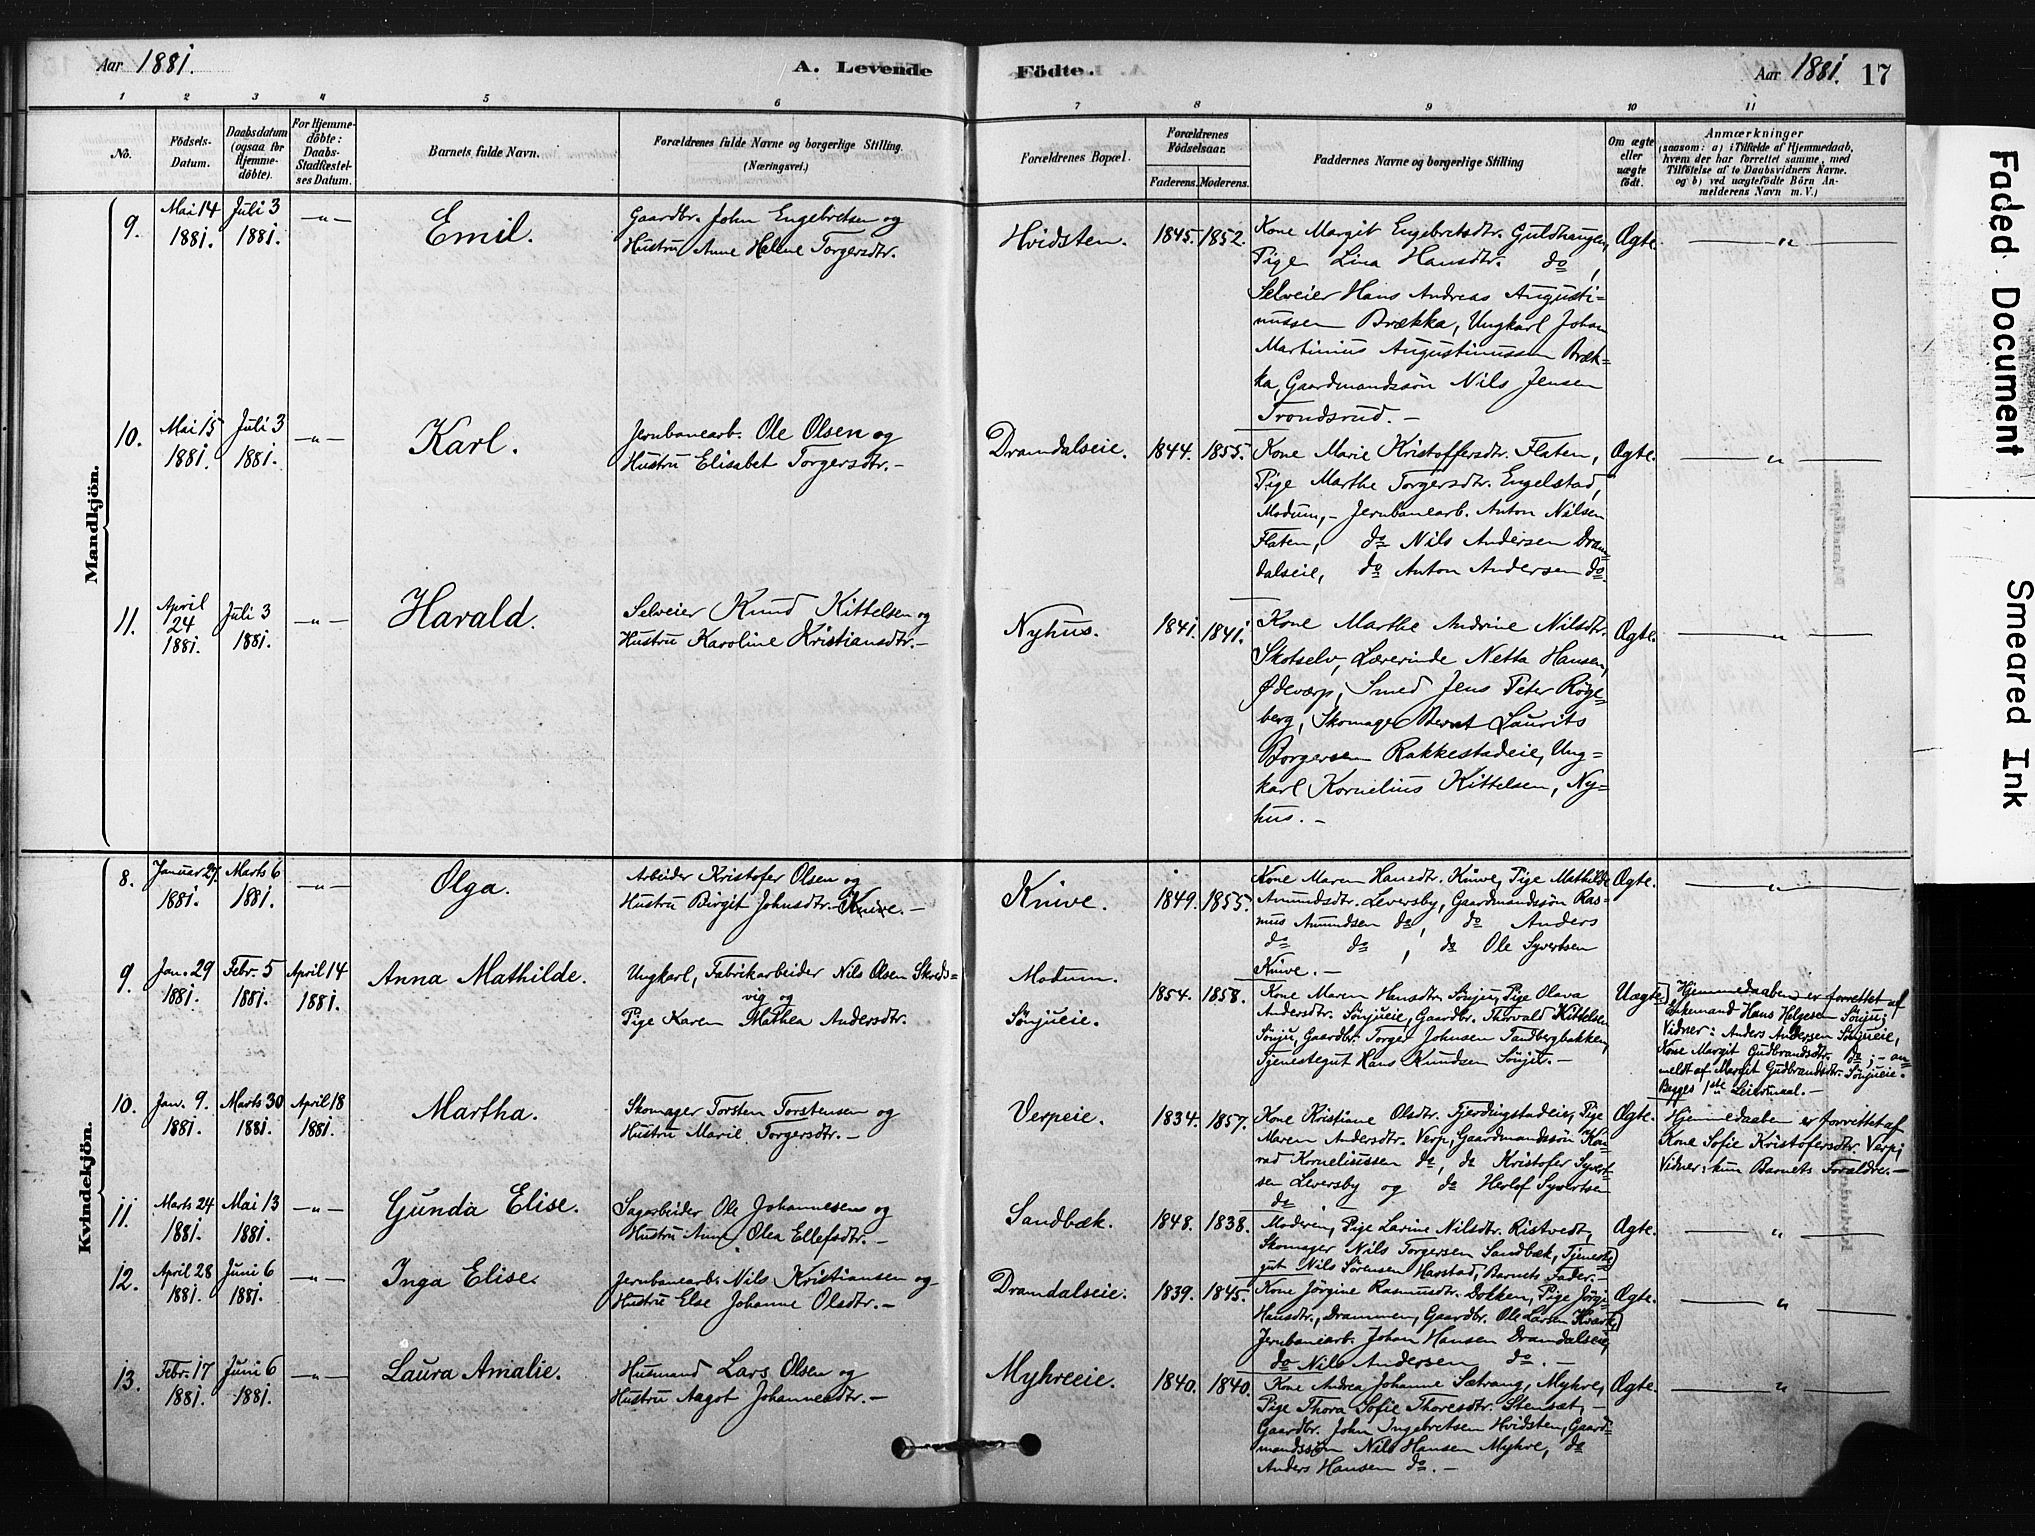 Aar 1881.
A. Levende
Födte.
Aar 1881.
17
1 2 3 4 5 6 7 8 9 10 11
No.
Födsels-
Datum.
Daabsdatum
(ogsaa for
Hjemme-
döbte).
For Hjemme-
döbte:
Daabs-
Stadfæstel-
ses Datum.
Barnets fulde Navn.
Forældrenes fulde Navne og borgerlige Stilling.
(Næringsvei.)
Forældrenes Bopæl.
Forældrenes
Födselsaar.
Faderens. Moderens.
Faddernes Navne og borgerlige Stilling
Om ægte
eller
uægte
födt.
Anmærkninger
(saasom: a) i Tilfælde af Hjemmedaab,
hvem der har forrettet samme, med
Tilföielse af to Daabsvidners Navne.
og b) ved uægtefödte Börn An-
melderens Navn m. V.)
Mandkjön.
9.
Mai 14
1881.
Juli 3
1881.
—"—
Emil.
Gaardbr. John Engebretsen og
Hustru Anne Helene Torgersdtr.
Hvidsten.
1845. 1852.
Kone Margit Engebretsdtr. Guldhaugen,
Pige Lina Hansdtr. do,
Selveier Hans Andreas Augusti=
nussen Brækka, Ungkarl Johan
Martinius Augustinussen Bræk=
ka, Gaardmandssön Nils Jensen
Trondsrud. —
Ægte.
— " —
10.
Mai 15
1881.
Juli 3
1881.
—"—
Karl.
Jernbanearb. Ole Olsen og
Hustru Elisabet Torgersdtr. —
Dramdalseie.
1844. 1855.
Kone Marie Kristoffersdtr. Flaten,
Pige Marthe Torgersdtr. Engelstad,
Modum, — Jernbanearb. Anton Nilsen
Flaten, do Nils Andersen Dram=
dalseie, do Anton Andersen do
Ægte.
— " —
11.
April
24
1881.
Juli 3
1881.
—"—
Harald.
Selveier Knud Kittelsen og
Hustru Karoline Kristiansdtr. —
Nyhus.
1841. 1841.
Kone Marthe Andrine Nilsdtr.
Skotselv, Lærerinde Netta Hansen,
Ødeværp, Smed Jens Peter Röge=
berg, Skomager Bernt Laurits
Borgersen Rakkestadeie, Ung=
karl Kornelius Kittelsen, Ny=
hus. —
Ægte.
— " —
Kvindekjön.
8.
Januar 27.
1881.
Marts 6
1881.
—"—
Olga.
Arbeider Kristofer Olsen og
Hustru Birgit Johnsdtr. Knive. —
Knive.
1849. 1855.
Kone Maren Hansdtr. Knive, Pige Mathilde
Amundsdtr. Leversby, Gaardmandssön Ras=
mus Amundsen do, do Anders
do do, do Ole Syvertsen
Knive. —
Ægte.
— " —
9.
Jan. 29
1881.
Febr. 5
1881.
April 14
1881.
Anna Mathilde.
Ungkarl, Fabrikarbeider Nils Olsen Skreds=
vig og
Pige Karen Mathea Andersdtr.
Modum.
Sönjueie.
1854. 1858.
Kone Maren Hansdtr. Sönju, Pige Olava
Andersdtr. Sönjueie, Gaardbr. Thorvald Kittelsen
Sönju, Gaardbr. Torger Johnsen Tandbergbakken,
Tjenestegut Hans Knudsen Sönju. —
Uægte.
Hjemmedaaben er forrettet af
Enkemand Hans Helgesen Sönju;
Vidner: Anders Andersen Sönjueie,
Kone Margit Gudbrandsdtr. do; — an=
meldt af Margit Gudbrandsdtr. Sönjueie.
Begges 1ste Leiermaal. —
10.
Jan. 9.
1881.
Marts 30
1881.
April 18
1881.
Martha.
Skomager Torsten Torstensen og
Hustru Maril Torgersdtr. —
Verpeie.
1834. 1857.
Kone Kristiane Olsdtr. Fjerdingstadeie, Pige
Maren Andersdtr. Verp, Gaardmandssön Kon=
rad Korneliussen do, do Kristofer Syvert=
sen Leversby og do Herlof Syvertsen
do
Ægte.
Hjemmedaaben er forrettet af
Kone Sofie Kristofersdtr. Verp;
Vidner: kun Barnets Forældre. —
11.
Marts 24
1881.
Mai 13
1881.
—"—
Gunda Elise.
Sagarbeider Ole Johannesens og
Hustru Anne Olea Ellefsdtr. —
Sandbæk.
1848. 1838.
Moderen, Pige Larine Nilsdtr. Ristvedt,
Skomager Nils Torgersen Sandbæk, Tjeneste=
gut Nils Sörensen Harstad, Barnets Fader. —
Ægte.
— " —
12.
April 28
1881.
Juni 6
1881.
—"—
Inga Elise.
Jernbanearb. Nils Kristiansen og
Hustru Else Johanne Olsdtr. —
Dramdalseie.
1839. 1845.
Kone Jörgine Rasmusdtr. Dokken, Pige Jörg.
Hansdtr., Drammen, Gaardbr. Ole Larsen
Jernbanearb. Johan Hansen Dramdalseie,
do Nils Andersen do. —
Ægte.
— " —
13.
Febr. 17
1881.
Juni 6
1881.
—"—
Laura Amalie.
Husmand Lars Olsen og
Hustru Aagot Johannesdtr. —
Myhreeie.
1840. 1840.
Kone Andrea Johanne Sætrang, Myhre,
Pige Thora Sofie Thoresdtr. Stensæt, —
Gaardbr. John Ingebretsen Hvidsten, Gaard=
mandssön Nils Hansen Myhre, do
Anders Hansen do. —
Ægte.
— " —
Faded Document
Smeared Ink